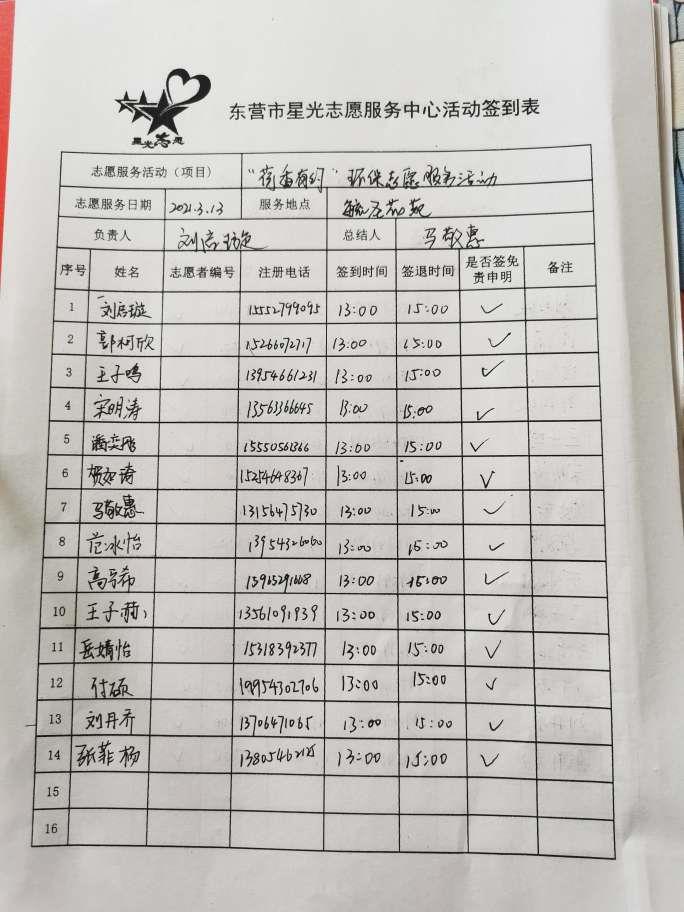 星光志愿
东营市星光志愿服务中心活动签到表
志愿服务活动（项目） “荷香有约”环保志愿服务活动
志愿服务日期 2021.3.13 服务地点
负责人 刘启璇 总结人 马敬惠
序号 姓名 志愿者编号 注册电话 签到时间 签退时间 是否签免责申明 备注
1 刘启璇 15552799095 13:00 15:00 ✓
2 郭柯欣 15266072717 13:00 15:00 ✓
3 王子鸣 13954661231 13:00 15:00 ✓
4 宋明涛 13563366645 13:00 15:00 ✓
5 潘奕彤 15550561366 13:00 15:00 ✓
6 贺如涛 15254648367 13:00 15:00 ✓
7 马敬惠 13156475730 13:00 15:00 ✓
8 范冰怡 13954326060 13:00 15:00 ✓
9 13:00 15:00 ✓
10 王子赫 13561091939 13:00 15:00 ✓
11 岳婧怡 15318392377 13:00 15:00 ✓
12 付硕 19954302706 13:00 15:00 ✓
13 刘丹乔 13706471065 13:00 15:00 ✓
14 张菲杨 13:00 15:00 ✓
15
16